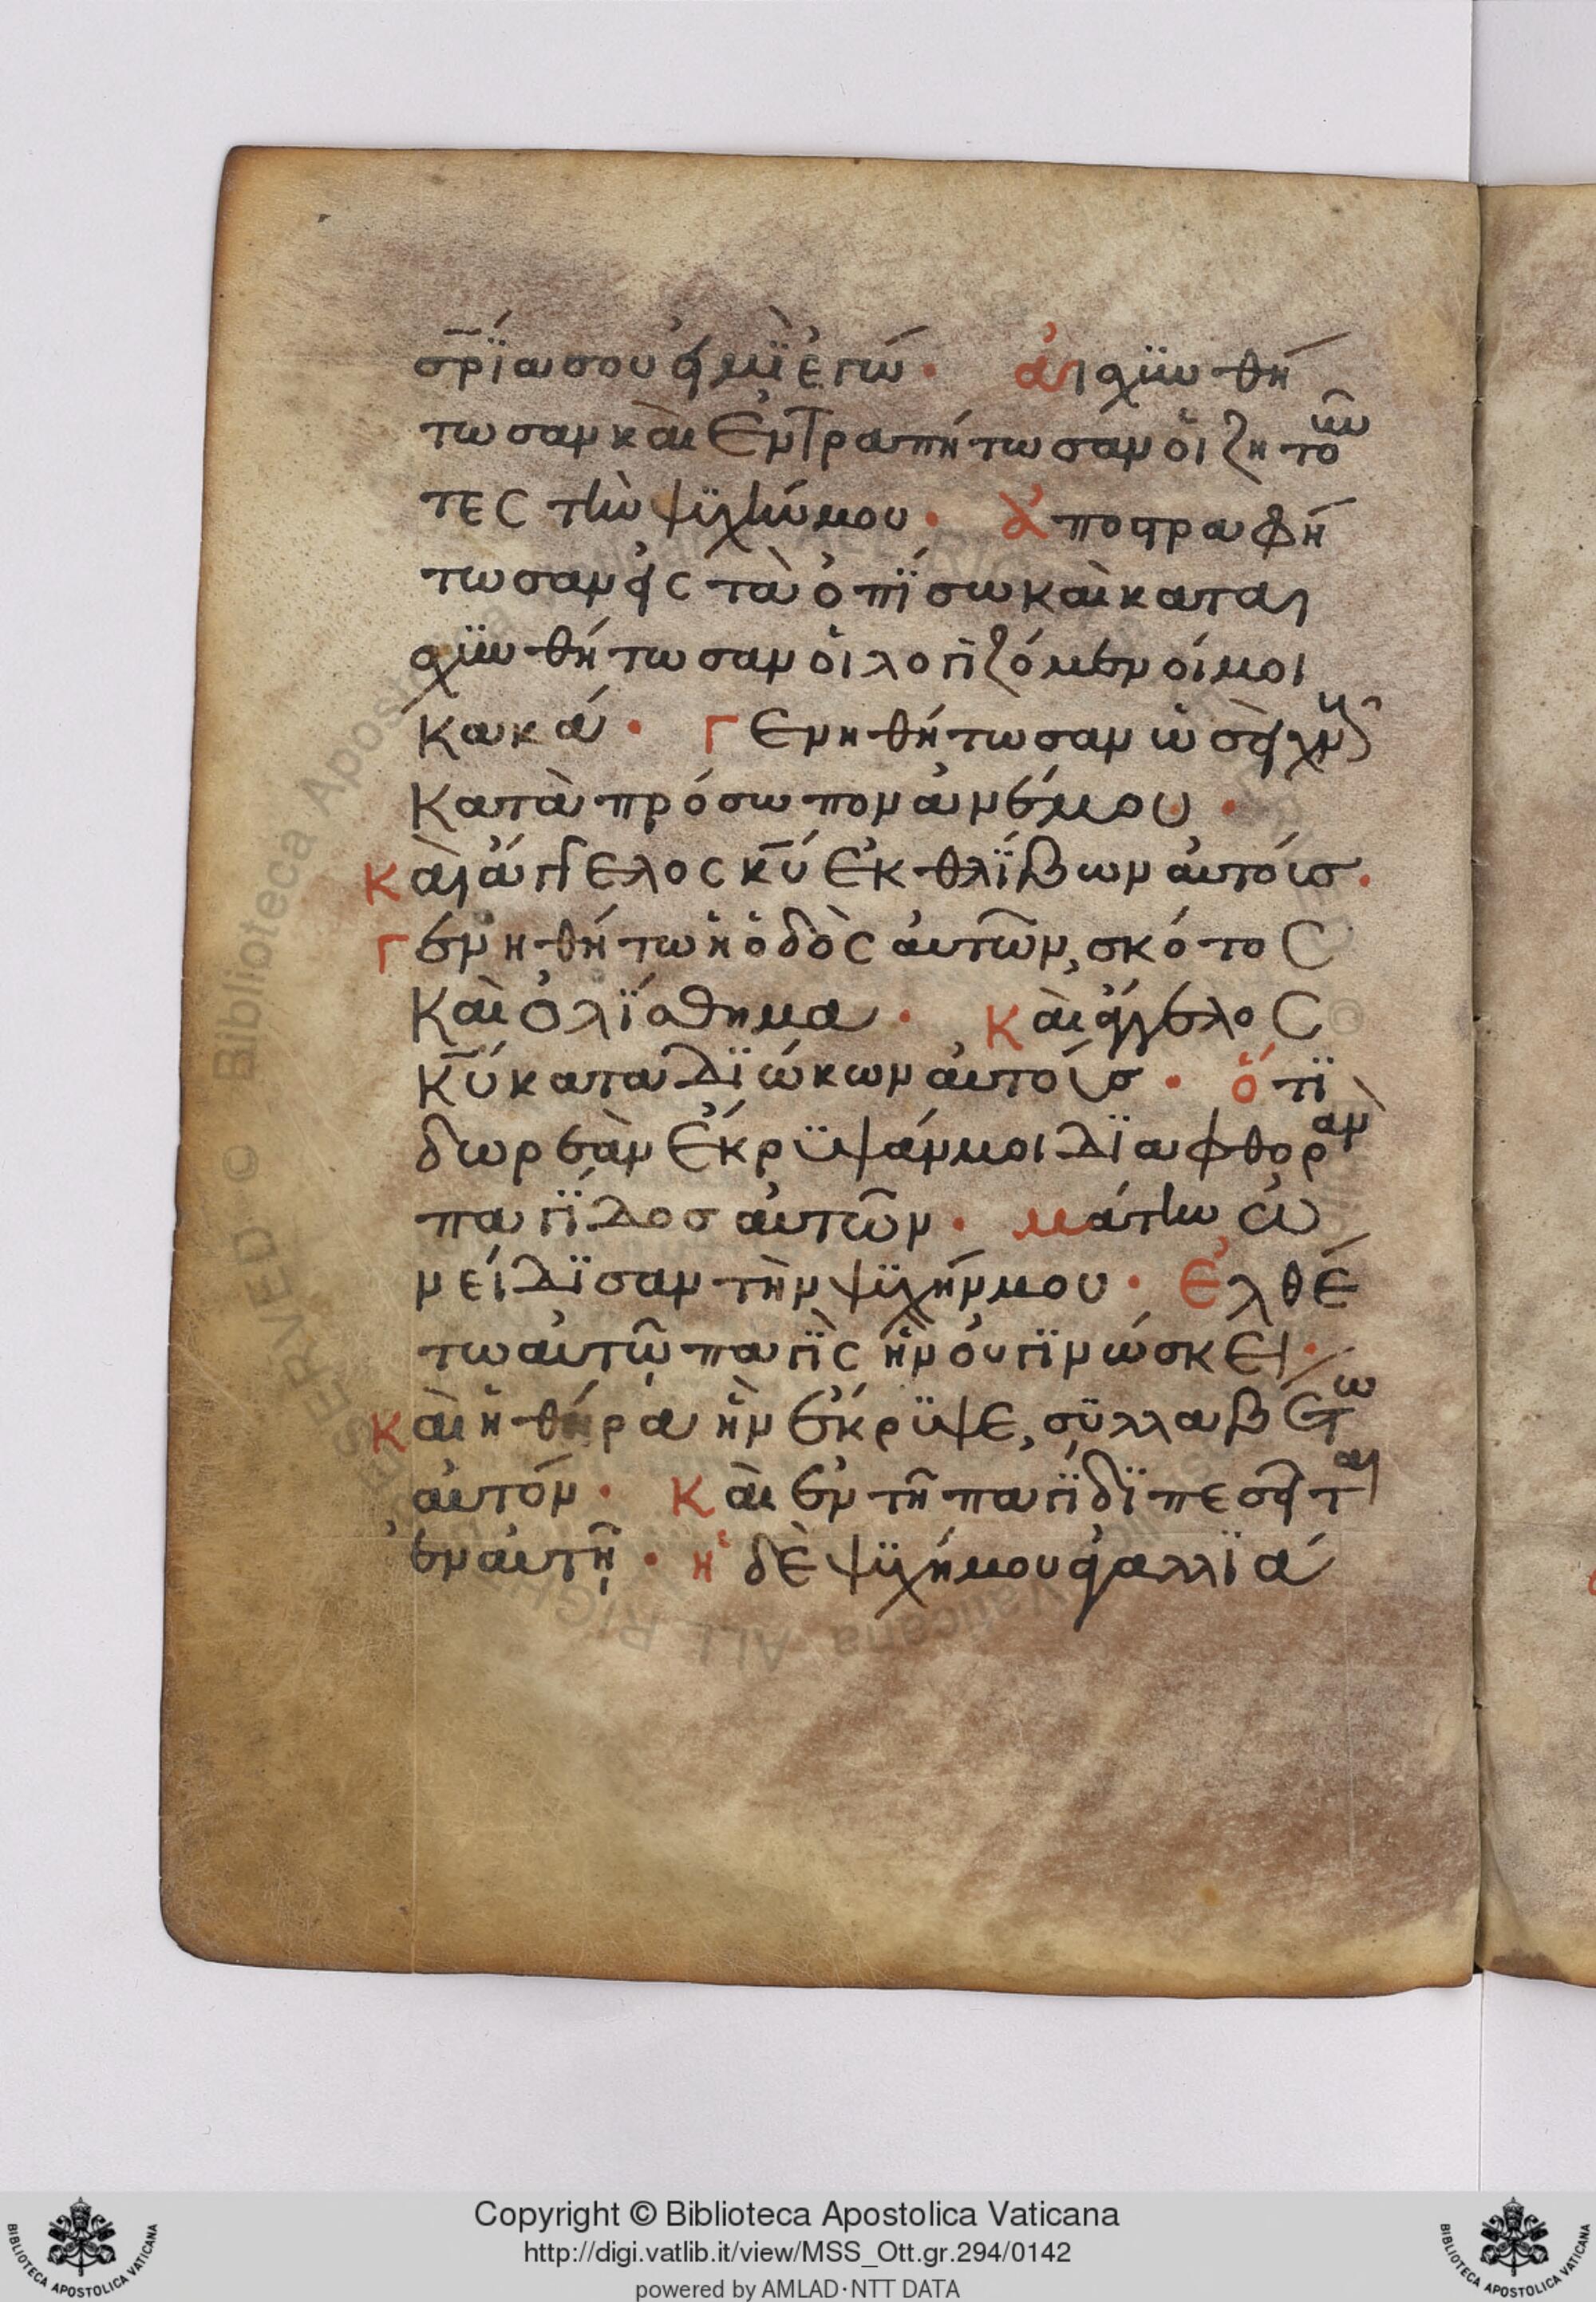 σρ̅ΐα σου εἰμῒ ἐγώ· αἰσχϋνθή
τωσαν καὶ ἐντραπήτωσαν οἱ ζητοῦν
τες τὴν ψϋχήν μου· ἀποστραφή
τωσαν εἰς τὰ ὀπΐσω καὶ καται
σχϋνθήτωσαν οἱ λογιζόμενοί μοι
κακά· γενηθήτωσαν ὡσεὶ χνοῦς
κατὰ πρόσωπον ἀνέμου·
καὶ ἄγγελος κ̅υ̅ ἐκθλΐβων αὐτούσ·
γενηθήτω ἡ ὁδὸς αὐτῶν, σκότος
καὶ ὀλΐσθημα· καὶ ἄγγελος
κ̅υ̅ καταδϊώκων αὐτούσ· ὅτϊ
δωρεὰν ἔκρϋψάν μοι δϊαφθορὰν
παγΐδοσ αὐτῶν· μάτην ὠ
νείδϊσαν τὴν ψϋχήν μου· ἐλθέ
τω αὐτῷ παγῒς ἣν οὐ γϊνώσκει·
καὶ ἡ θήρα ἣν ἔκρϋψε, σϋλλαβέτω
αὐτόν· καὶ ἐν τῇ παγΐδϊ πεσεῖται
ἐν αὐτῇ· ἡ δὲ ψϋχή μου ἀγαλλϊά
Copyright © Biblioteca Apostolica Vaticana
http://digi.vatlib.it/view/MSS_Ott.gr.294/0142
powered by AMLAD·NTT DATA